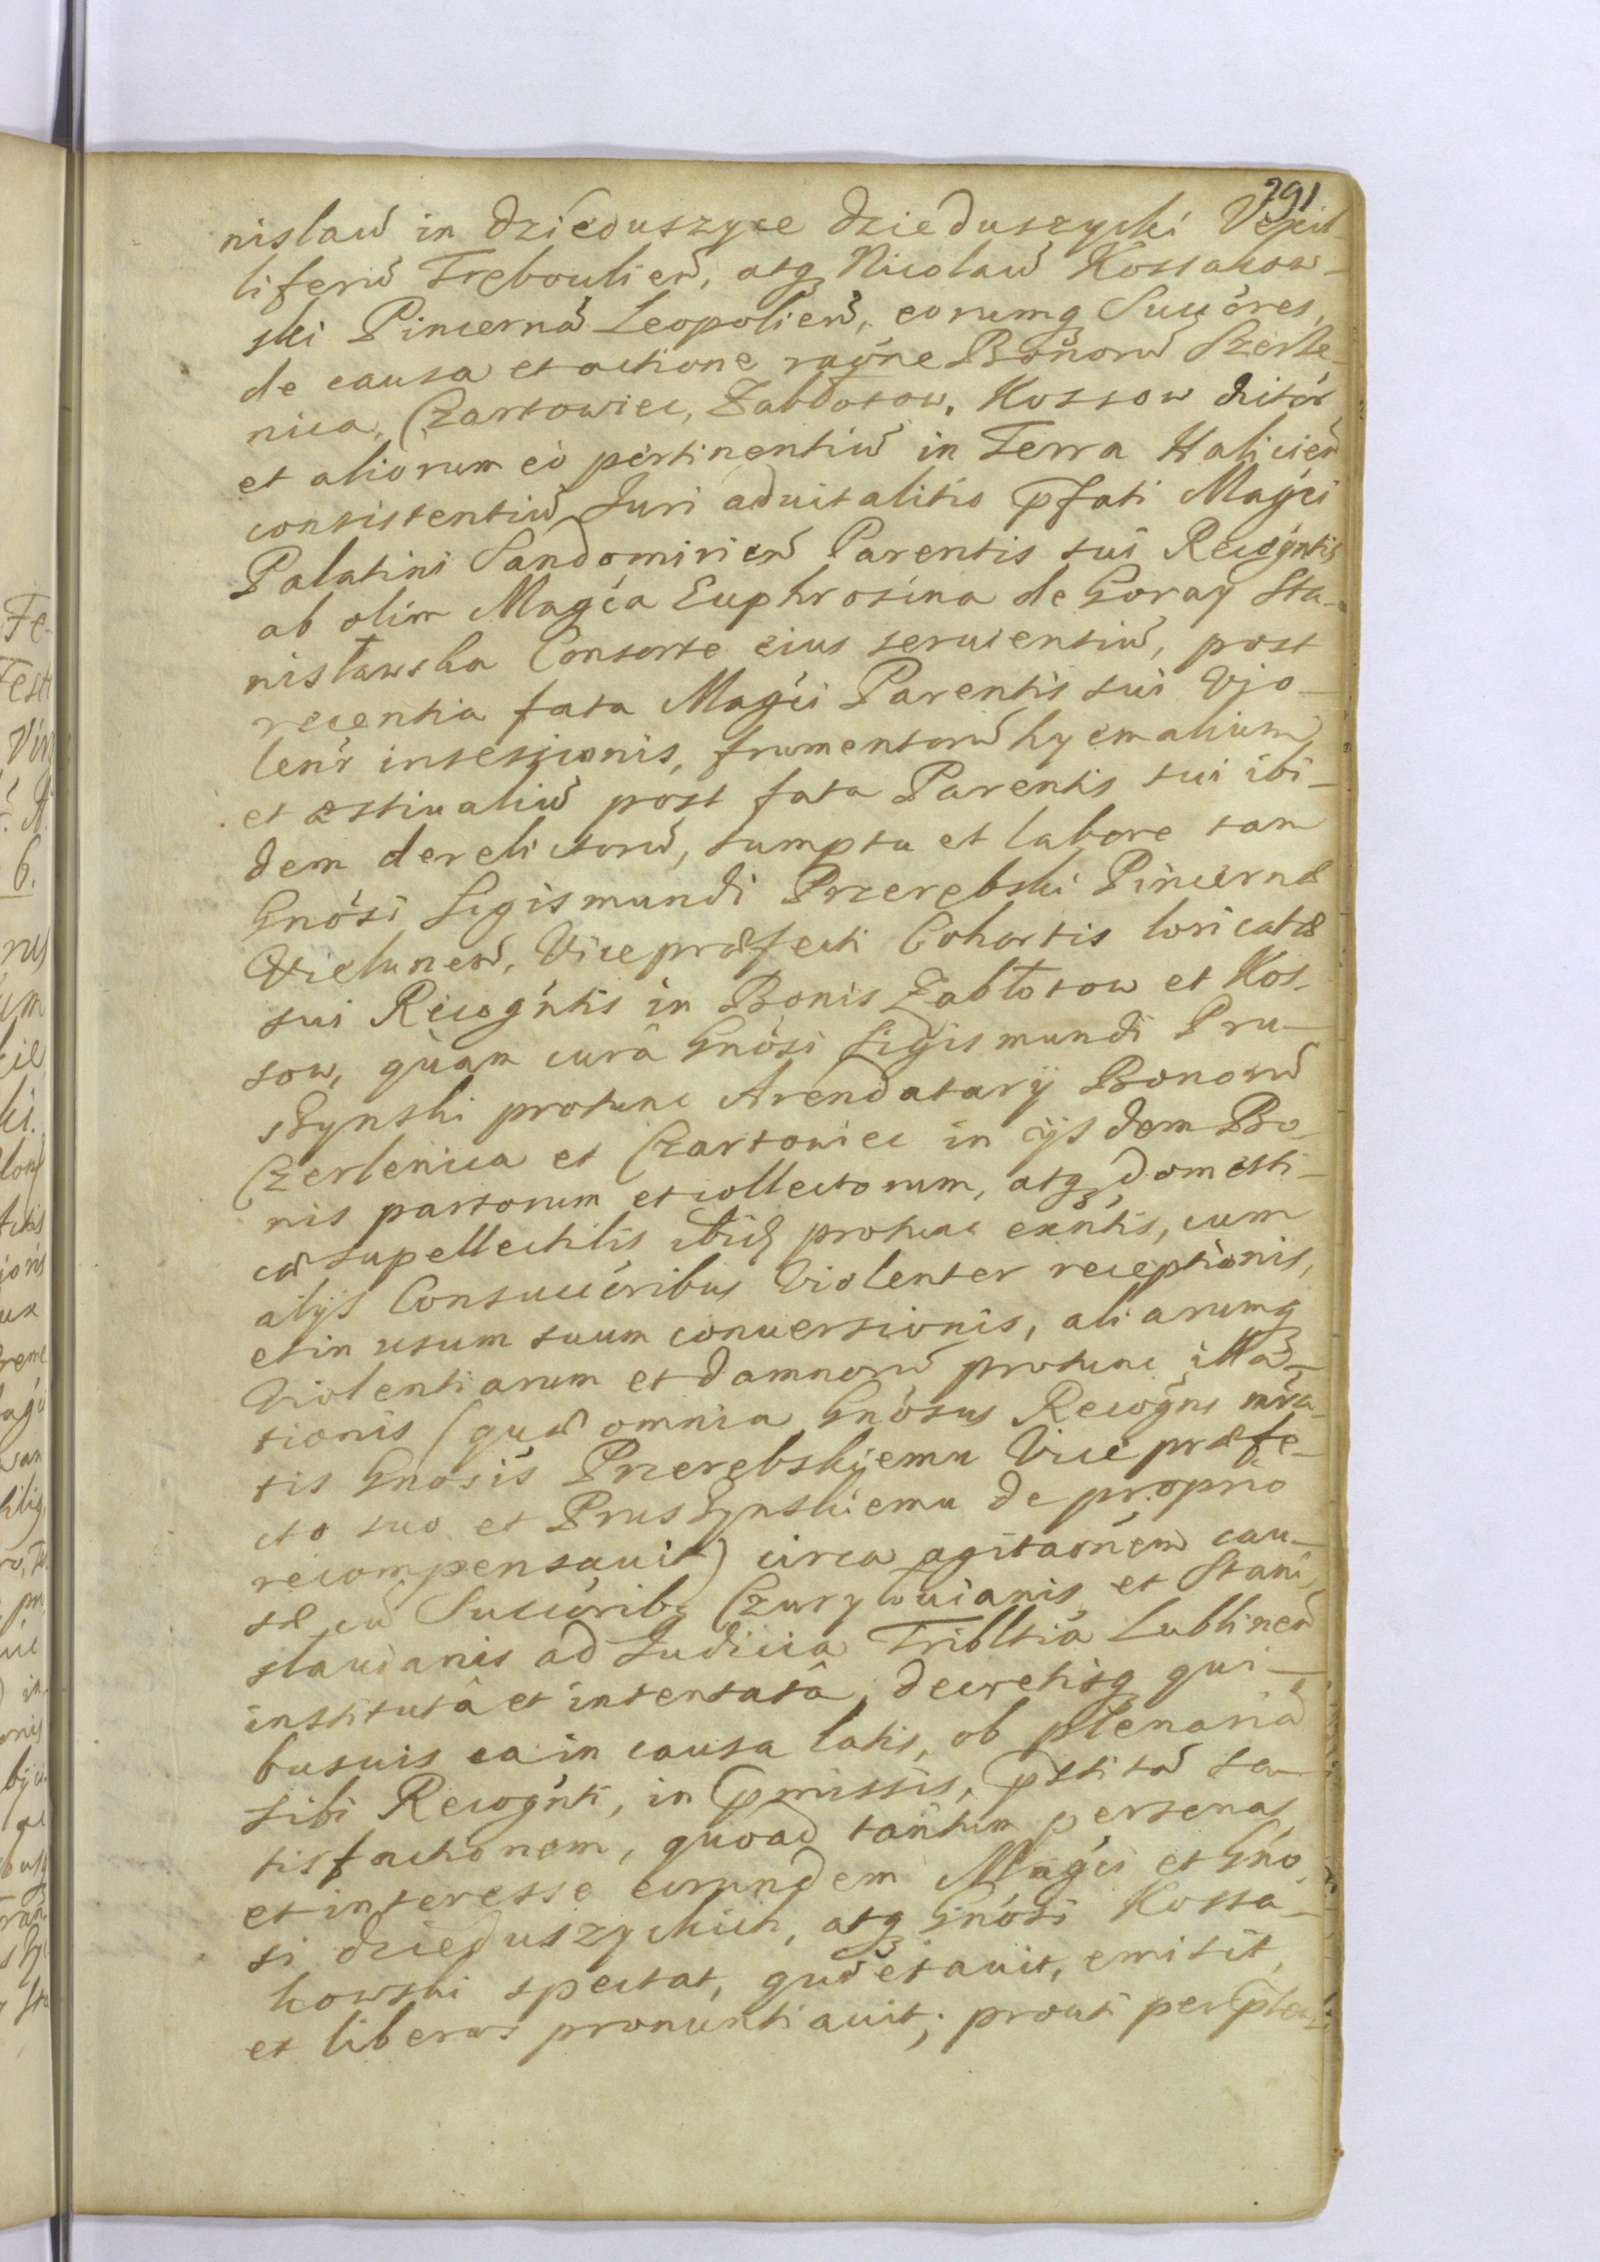 291
nislaũ in Dzieduszyce Dzieduszycki Vexil-
liferũ Treboulien̄, atq₃ Nicolaũ Kossakow-
ski Pincernã Leopolien̄, eorumq₃ Succ̃ores,
de causa et actione rãone Bon̄orũ Czerle-
nica, Czartowiec, Zabłotow, Kossow dictor̃
et aliorum eò pertinentiũ in Terra Halicien̄
consistentiũ Juri aduitalitio p̃fati Mag̃ci
Palatini Sandomirien̄ Parentis sui Recog̃ntis
ab olim Mag̃ca Euphrosina de Goray Sta-
nisławska Consorte eius seruientiũ, post
recentia fata Mag̃ci Parentis sui Vio-
len̄r intessionis, frumentorũ hyemalium
et æstiualiũ post fata Parentis sui ibi-
dem derelictorũ, sumptu et labore tam
Gñosi Sigismundi Przerębski Pincernæ
Vielunen̄, Vicepræfecti Cohortis loricatæ
sui Recog̃ntis in Bonis Zabłotow et Kos-
sow, quam curâ Gñosi Sigismundi Pru-
szynski protunc Arendatarij Bonorũ
Czerlenica et Czartowiec in ijsdem Bo-
nis partorum et collectorum, atq₃ domesti-
cæ supellectilis ibid̃ protunc exñtis, cum
alijs Consucc̃oribus Violenter receptionis,
et in usum suum conuersionis, aliarumq₃
Violentiarum et damnorũ protunc illa-
tionis (quæ omnia Gñosus Recog̃ns
tis Gñosis Przerębskiemu Vice præfe-
cto suo et Pruszynskiemu de proprio
recompensauit) circa agitaõnem cau-
sæ cũ Succ̃orib₃ Czuryłouianis et Stani-
slauianis ad Judicia Tribltia Lublinen̄
institutâ et intentatâ, decretisq₃ qui-
busuis ea in causa latis, ob plenariã
sibi Recog̃nti, in p̃missis, p̃stitã sa-
tisfactionem, quoad tantum personas
et interesse eorundem Mag̃ci et Gño-
si Dzieduszyckich, atq₃ Gñosi Kossa-
kowski spectat, quietauit, emisit,
et liberos pronuntiauit; prout per p̃sen-